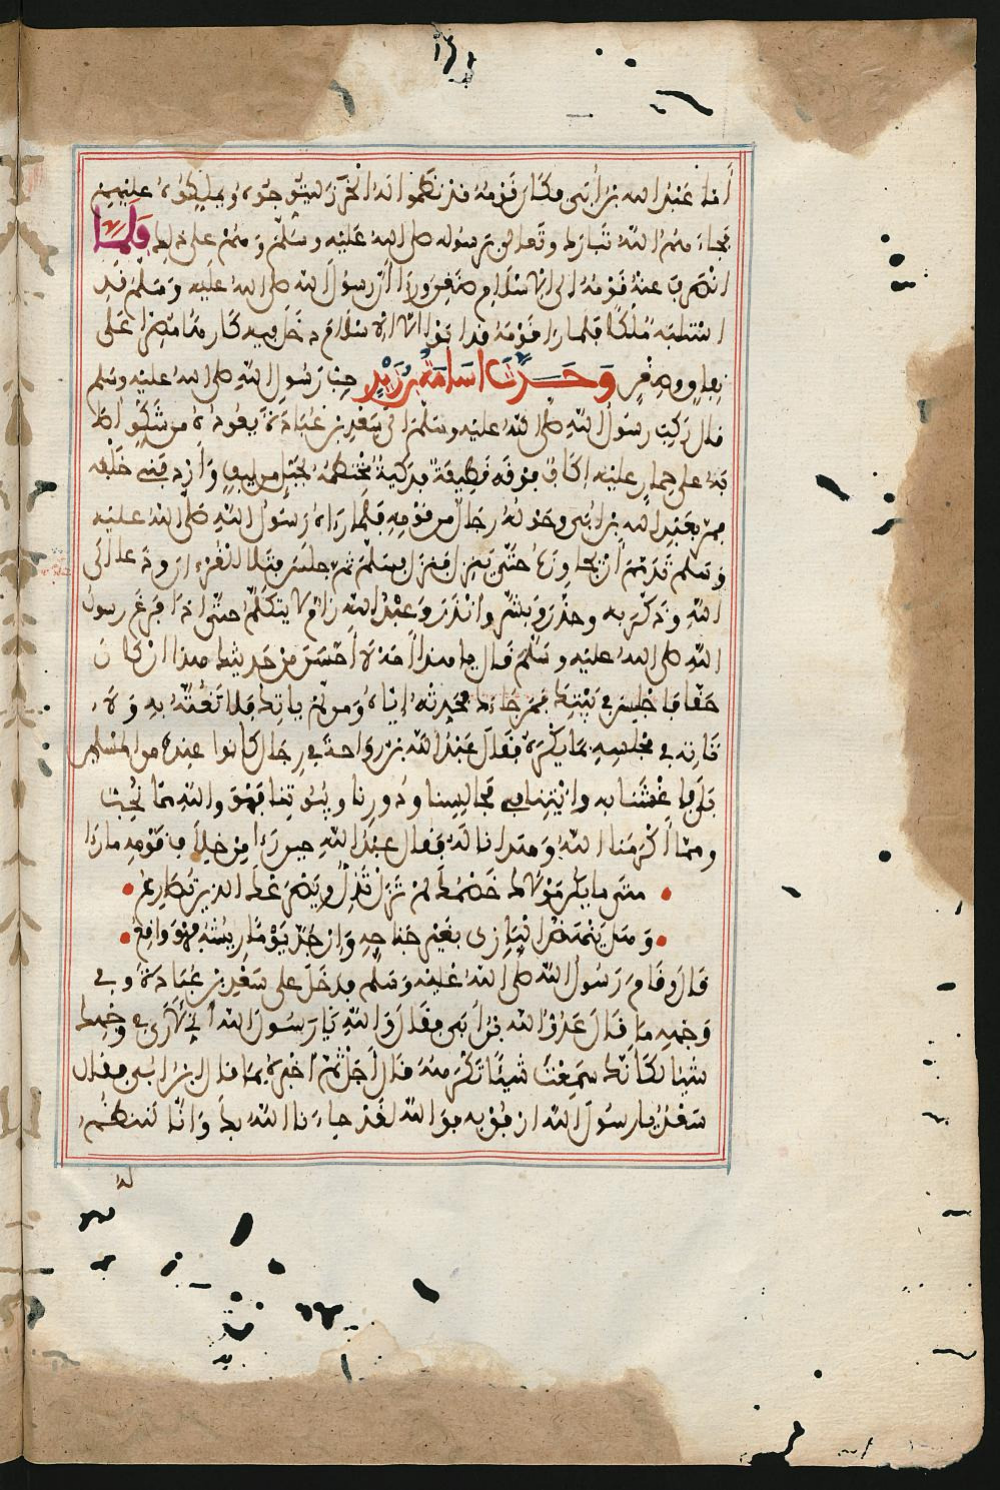 أما عبد الله بن أبي فكان قومه قد نظموا له الخرز ليتوجوه ويملكوه عليهم
فجاءهم الله تبارك وتعالى برسوله صلى الله عليه وسلم وهم على ذلك فلما
انصرف عنه قومه الى الاسلام ضغن ورأى أن رسول الله صلى الله عليه وسلم قد
استلبه ملكا فلما رأى قومه قد أبوا الا الاسلام دخل فيه كارها مصرا على
نفاق وضغن وحدثنا اسامة بن زيد حب رسول الله صلى الله عليه وسلم
قال ركب رسول الله صلى الله عليه وسلم الى سعد بن عبادة يعوده من شكو اصا
به على حمار عليه إكاف فوقه قطيفة فدكية مختطمه بحبل من ليف وأردفني خلفه
فمر بعبد الله بن أبي وحوله رجال من قومه فلما رآه رسول الله صلى الله عليه
وسلم تذمم أن يجاوزه حتى ينزل فنزل فسلم ثم جلس فتلا القرءان ودعا الى
الله وذكر به وحذر وبشر وانذر وعبد الله زام لا يتكلم حتى اذا فرغ رسول
الله صلى الله عليه وسلم قال يا هذا انه لا أحسن من حديثك هذا ان كان
حقا فاجلس في بيتك فمن جاءك فحدثه إياه ومن لم ياتك فلا تغته به ولا
تاته في مجلسه بما يكره فقال عبد الله بن رواحة في رجال كانوا عنده من المسلمين
بلى فاغشنا به وائتنا في مجالسنا ودورنا وبيوتنا فهو والله مما نحب
ومما أكرمنا الله وهدانا له فقال عبد الله حين رأى من خلاف قومه ما رأى
متى ما يكن مولاك خصمك لم تزل تذل ويصرعك الذين تصارع
وهل ينهض البازي بغير جناحه وان جذ يوما ريشه فهو واقع
قال وقام رسول الله صلى الله عليه وسلم فدخل على سعد بن عبادة وفي
وجهه ما قال عدو الله بن أبي فقال والله يا رسول الله إني لأرى في وجهك
شيئا لكأنك سمعت شيئا تكرهه قال أجل ثم أخبره بما قال ابن أبي فقال
سعد يا رسول الله ارفق به فوالله لقد جاءنا الله بك وانا لننظم